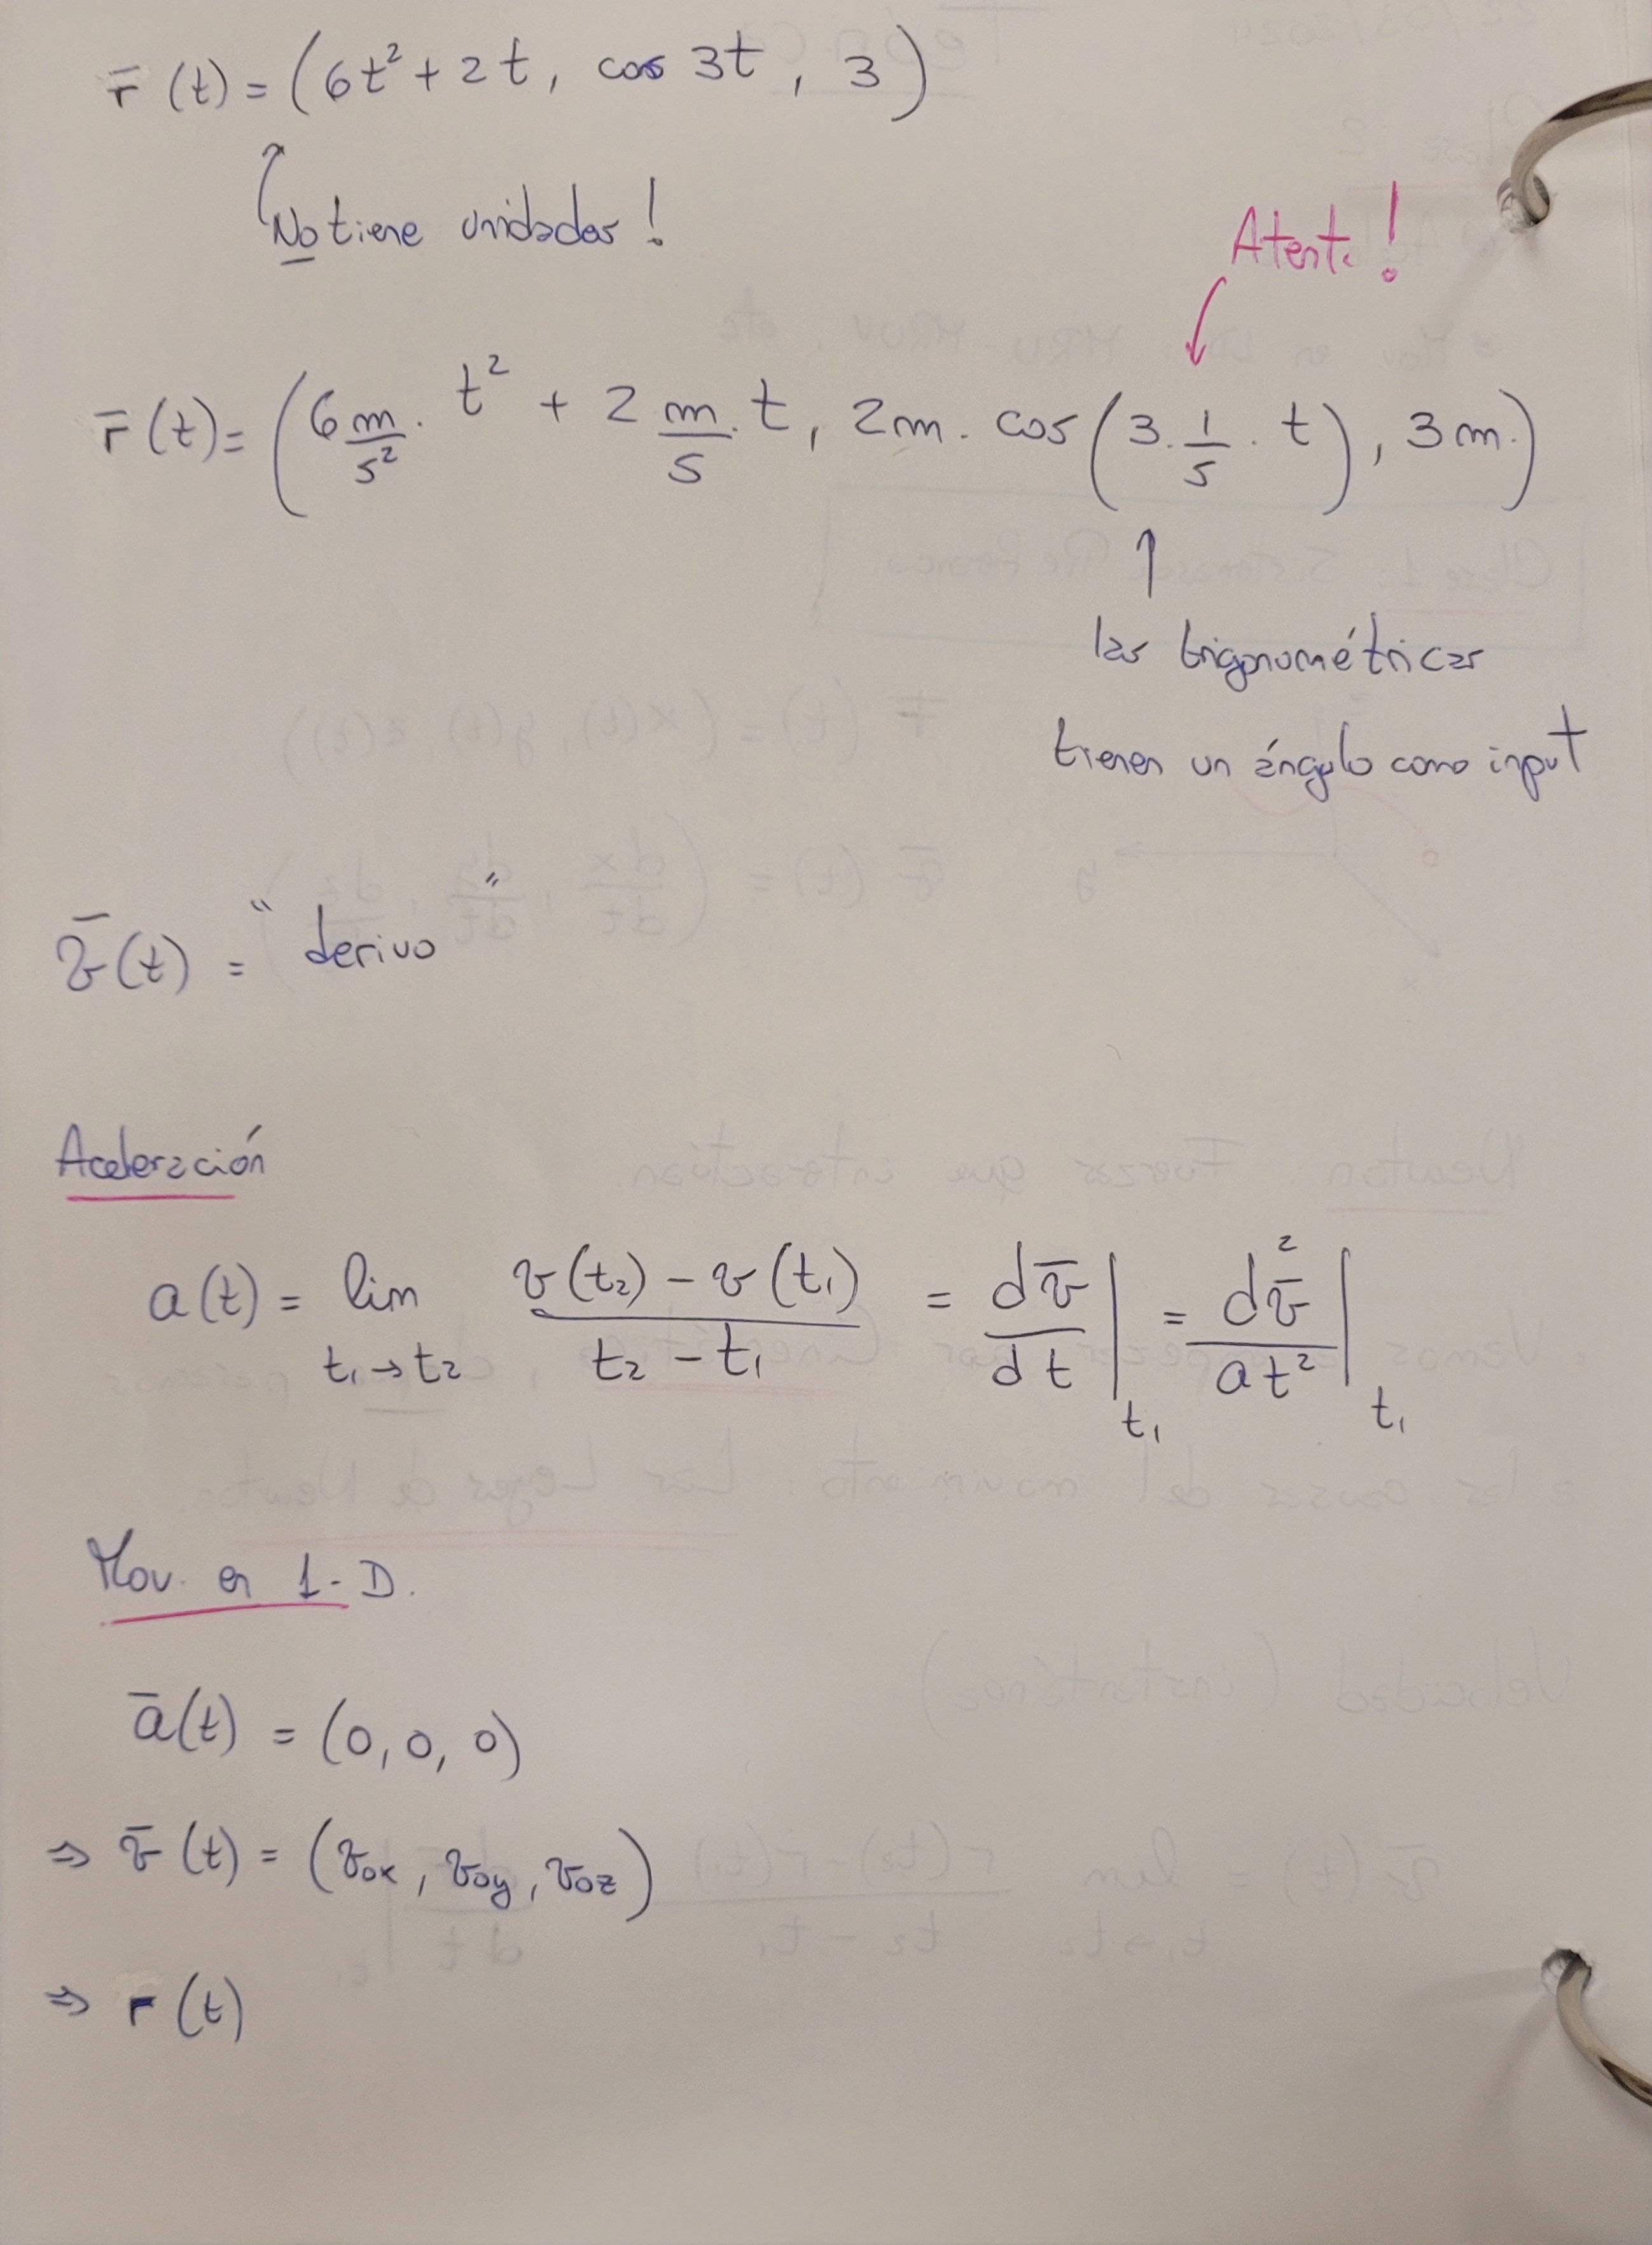 r̄ (t) = (6t² + 2t, cos 3t, 3)
No tiene unidades!
Atenti!
r̄ (t) = (6 m/s² · t² + 2 m/s · t, 2m · cos (3 · 1/s · t), 3m.)
las trigonométricas
tienen un ángulo como input
v̄(t) = "derivo"
Aceleración
a(t) = lim t₁→t₂ v(t₂) - v(t₁) / t₂ - t₁ = dv̄/dt |t₁ = d²v̄/dt² |t₁
Mov. en 1-D.
ā(t) = (0, 0, 0)
⇒ v̄ (t) = (v₀x, v₀y, v₀z)
⇒ r (t)